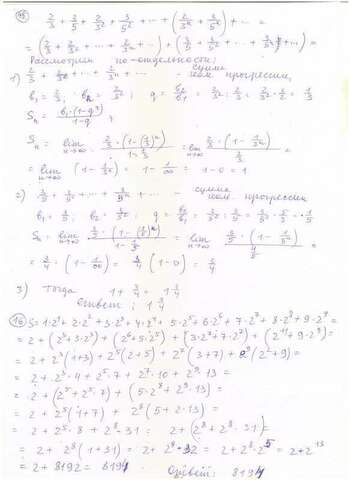 15) 2/3 + 3/5 + 2/3² + 3/5² + ... + (2/3ⁿ + 3/5ⁿ) + ... =
= (2/3 + 2/3² + ... + 2/3ⁿ + ...) + (3/5 + 3/5² + ... + 3/5ⁿ + ...) =
Рассмотрим по-отдельности:
1) 2/3 + 2/3² + ... + 2/3ⁿ + ... - сумма геом. прогрессии,
b₁ = 2/3; b₂ = 2/3²; q = b₂/b₁ = 2/3² : 2/3 = 2/3² · 3/2 = 1/3
Sₙ = b₁·(1-qⁿ)/1-q;
Sₙ = lim n→∞ 2/3·(1-(1/3)ⁿ)/1-1/3 = lim n→∞ 2/3·(1-1/3ⁿ)/2/3 =
= lim n→∞ (1 - 1/3ⁿ) = 1 - 1/∞ = 1 - 0 = 1
2) 3/5 + 3/5² + ... + 3/5ⁿ + ... - сумма геом. прогрессии
b₁ = 3/5; b₂ = 3/5²; q = b₂/b₁ = 3/5² : 3/5 = 3/5² · 5/3 = 1/5
Sₙ = lim n→∞ 3/5·(1-(1/5)ⁿ)/1-1/5 = lim n→∞ 3/5·(1-1/5ⁿ)/4/5 =
= 3/4 · (1 - 1/∞) = 3/4 (1-0) = 3/4
3) Тогда 1 + 3/4 = 1 3/4
Ответ: 1 3/4
16) S = 1·2¹ + 2·2² + 3·2³ + 4·2⁴ + 5·2⁵ + 6·2⁶ + 7·2⁷ + 8·2⁸ + 9·2⁹ =
= 2 + (2³ + 3·2³) + (2⁶ + 5·2⁵) + (3·2⁷ + 7·2⁷) + (2¹¹ + 9·2⁹) =
= 2 + 2³(1+3) + 2⁵(2+5) + 2⁷(3+7) + 2⁹(2²+9) =
= 2 + 2³·4 + 2⁵·7 + 2⁷·10 + 2⁹·13 =
= 2 + (2⁵ + 2⁵·7) + (5·2⁸ + 2⁹·13) =
= 2 + 2⁵(1+7) + 2⁸(5+2·13) =
= 2 + 2⁵·8 + 2⁸·31 = 2 + (2⁸ + 2⁸·31) =
= 2 + 2⁸(1+31) = 2 + 2⁸·32 = 2 + 2⁸·2⁵ = 2 + 2¹³
= 2 + 8192 = 8194 Ответ: 8194